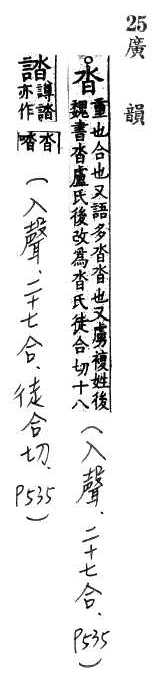 25廣韻
沓重也合也又語多沓沓也又虜複姓後
魏書沓盧氏後改為沓氏徒合切十八
(入聲.二十七合.P535)
誻譐誻
亦作
㗳沓(入聲.二十七合.徒合切.P535)